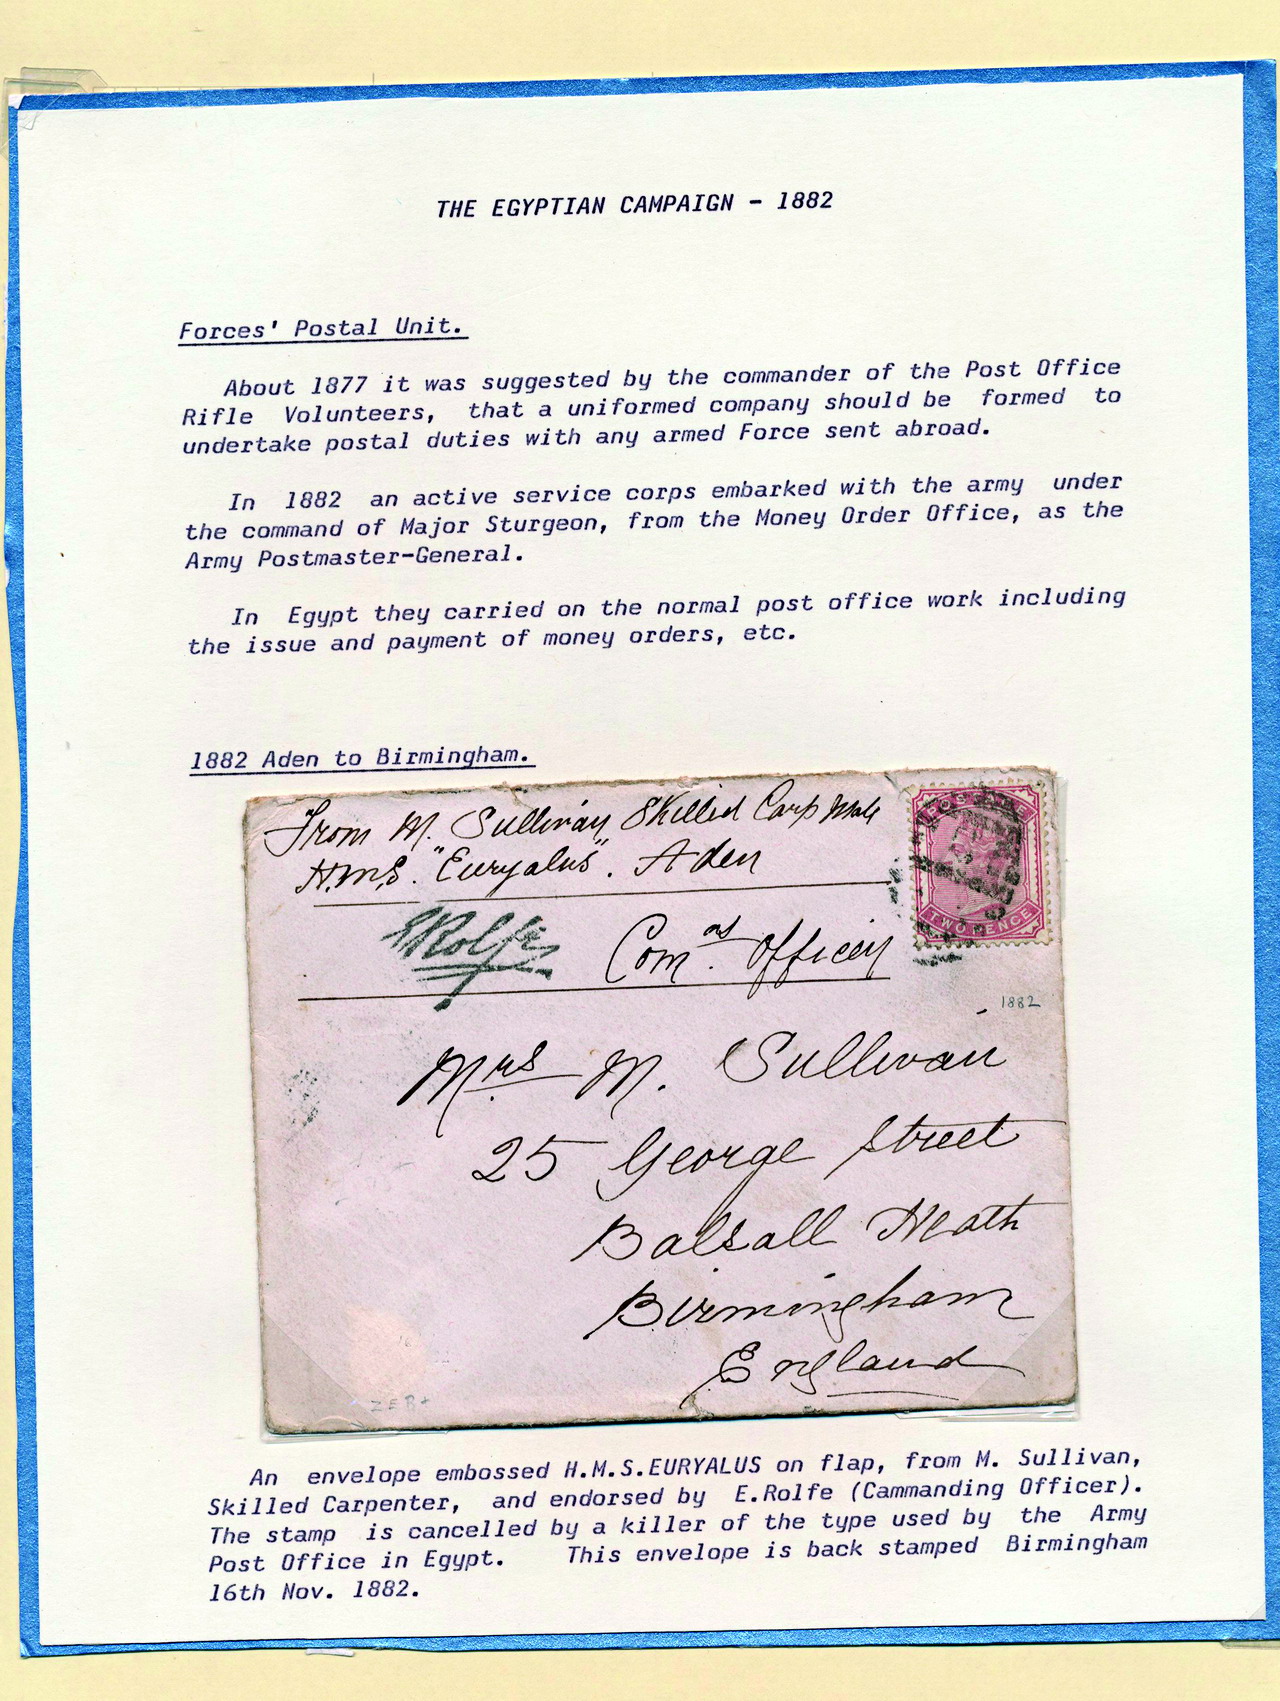 THE EGYPTIAN CAMPAIGN - 1882
Forces' Postal Unit.
About 1877 it was suggested by the commander of the Post Office
Rifle Volunteers, that a uniformed company should be formed to
undertake postal duties with any armed Force sent abroad.
In 1882 an active service corps embarked with the army under
the command of Major Sturgeon, from the Money Order Office, as the
Army Postmaster-General.
In Egypt they carried on the normal post office work including
the issue and payment of money orders, etc.
1882 Aden to Birmingham.
From M. Sullivan Skilled Carp Mate
H.M.S. "Euryalus". Aden
TWO PENCE
ERolfe Comg. Officer
1882
Mrs M. Sullivan
25 George Street
Balsall Heath
Birmingham
England
An envelope embossed H.M.S.EURYALUS on flap, from M. Sullivan,
Skilled Carpenter, and endorsed by E.Rolfe (Cammanding Officer).
The stamp is cancelled by a killer of the type used by the Army
Post Office in Egypt. This envelope is back stamped Birmingham
16th Nov. 1882.